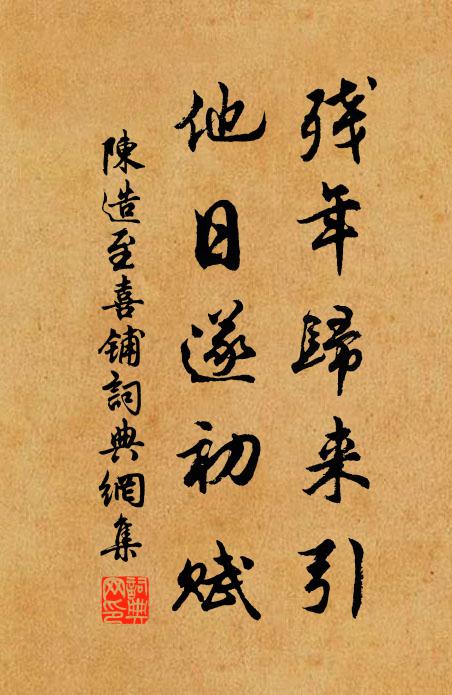 残年歸来引
他日遂初赋
陳造至喜鋪詞典網集
詞典
网印